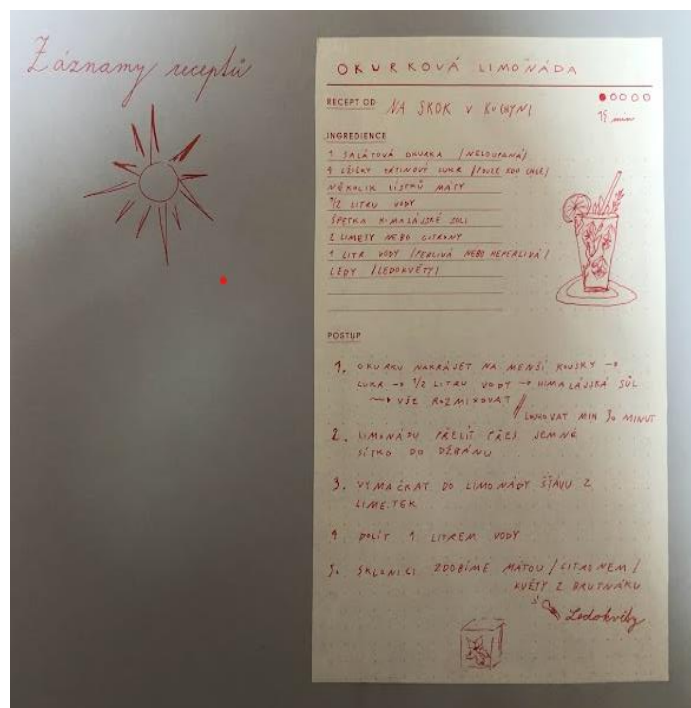 Záznamy receptů
OKURKOVÁ LIMONÁDA
RECEPT OD NA SKOK V KUCHYNI
15 min
INGREDIENCE
1 SALÁTOVÁ OKURKA /NELOUPANÁ/
4 LŽIČKY TŘTINOVÝ CUKR /PODLE CHUTI/
NĚKOLIK LÍSTKŮ MÁTY
1/2 LITRU VODY
ŠPETKA HIMALÁJSKÉ SOLI
2 LIMETY NEBO CITRONY
1 LITR VODY /PERLIVÁ NEBO NEPERLIVÁ/
LEDY /LEDOKVĚTY/
POSTUP
1. OKURKU NAKRÁJET NA MENŠÍ KOUSKY →
CUKR → 1/2 LITRU VODY → HIMALÁJSKÁ SŮL
→ VŠE ROZMIXOVAT
LOUHOVAT MIN 30 MINUT
2. LIMONÁDU PŘELÍT PŘES JEMNÉ
SÍTKO DO DŽBÁNU
3. VYMAČKAT DO LIMONÁDY ŠŤÁVU Z
LIMETEK
4 DOLÍT 1 LITREM VODY
5. SKLENICI ZDOBÍME MÁTOU/CITRONEM/
KVĚTY Z BRUTNÁKU
Ledokvěty